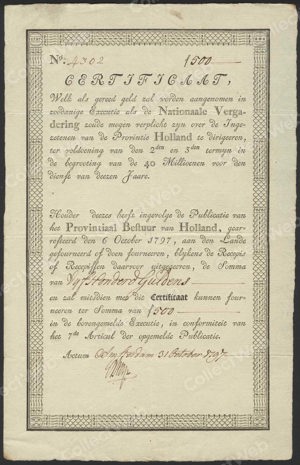 No. 4302 1500
CERTIFICAAT,
Welk als gereed geld zal worden aangenomen in
zoodanige Executie als de Nationaale Verga-
dering zoude mogen verplicht zyn over de Inge-
zetenen van de Provintie Holland te dirigeeren,
ter voldoening van den 2den en 3den termyn in
de begrooting van de 40 Millioenen voor den
dienst van deezen Jaare.
Houder deezes heeft ingevolge de Publicatie van
het Provinciaal Bestuur van Holland, gear-
resteerd den 6 October 1797, aan den Lande
gefourneerd of doen fourneren, blykens de Recepis
of Recepissen daarvoor uitgegeeven, de Somma
van Vyftienhonderd Guldens
en zal mitsdien met dit Certificaat kunnen four-
neeren ter Somma van 1500
in de bovengemelde Executie, in conformiteit van
het 7de Articul der opgemelde Publicatie.
Actum Amsterdam 31 October 1797